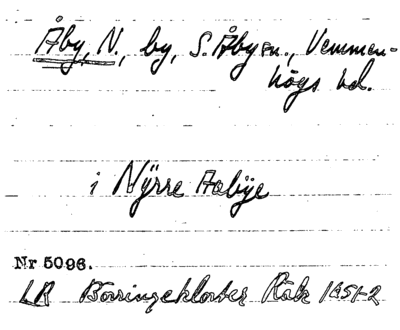 Åby, N., by, S. Åby sn., Vemmen-
högs hd.
i Nÿrre Aabÿe
Nr 5096.
LR Börringekloster Räk 1651-2